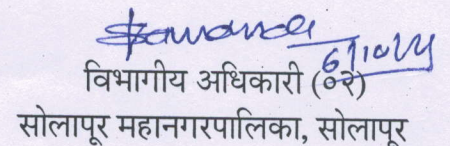 विभागीय अधिकारी (०२)
सोलापूर महानगरपालिका, सोलापूर